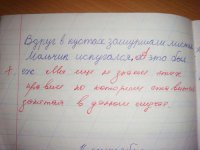 Вдруг в кустах зашуршали листья
Мальчик испугался, но это был
еж Мы еще не знаем этих
правил по которым ставится
запятая в данном случае.